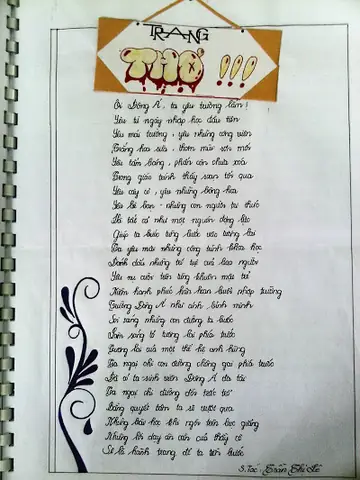 TRANG
THƠ !!!
Ơi Đông Á, ta yêu trường lắm!
Yêu từ ngày nhập học đầu tiên
Yêu mái trường, yêu những công viên
Trắng hoa sữa, thơm mùi vờn mới
Yêu tấm bảng, phấn còn chưa xóa
Trong giáo trình thầy soạn tối qua
Yêu cây cỏ, yêu những bông hoa
Yêu bè bạn - những con người tri thức
Là tất cả như một nguồn động lực
Giúp ta bước từng bước vào tương lai
Ta yêu mãi những công trình khoa học
Đánh dấu những trí tuệ của bao người
Yêu nụ cười trên từng khuôn mặt trẻ
Niềm hạnh phúc hân hoan buổi nhập trường
Trường Đông Á như ánh bình minh
Soi rạng những con đường ta bước
Làm sáng tỏ tương lai phía trước
Gương lái của một thế hệ anh hùng
Ta ngại chi con đường chông gai phía trước
Là vì ta sinh viên Đông Á đa tài
Ta ngại chi đường đời trắc trở
Bằng quyết tâm ta sẽ vượt qua
Những bài học khi ngồi trên lớp giảng
Những lời dạy ân cần của thầy cô
Sẽ là hành trang để ta tiến bước
S.Tác: Trần Thị Lê